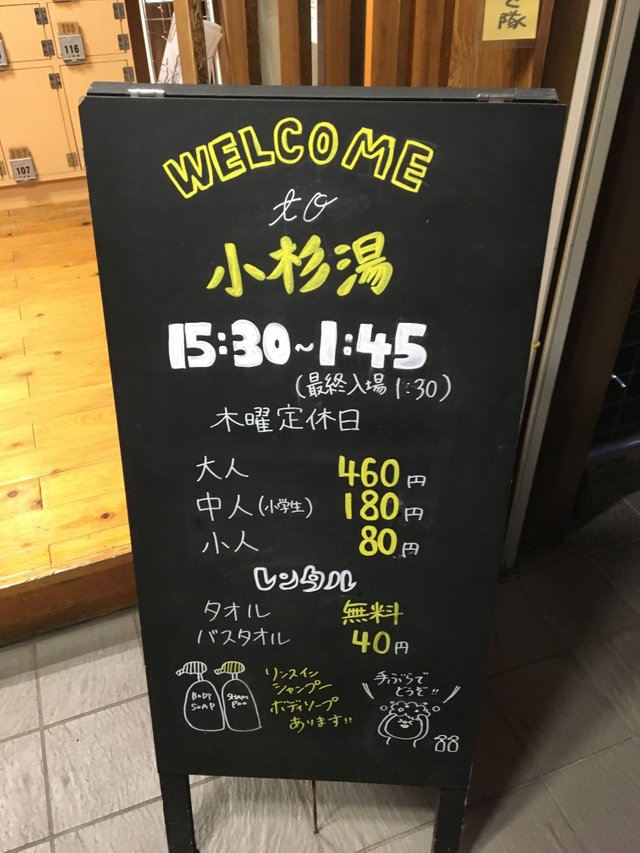 と隊
116
107
WELCOME
to
小杉湯
15:30~1:45
(最終入場 1:30)
木曜定休日
大人 460円
中人(小学生) 180円
小人 80円
レンタル
タオル 無料
バスタオル 40円
BODY SOAP
SHAMPOO
リンスイン
シャンプー
ボディソープ
あります!!
手ぶらで
どうぞ!!